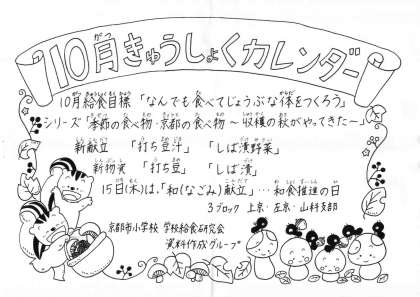 10月きゅうしょくカレンダー
10月給食目標「なんでも食べてじょうぶな体をつくろう」
シリーズ「季節の食べ物・京都の食べ物〜収穫の秋がやってきた〜」
新献立 「打ち豆汁」 「しば漬野菜」
新物資 「打ち豆」 「しば漬」
15日(木)は、「和(なごみ)献立」…和食推進の日
3ブロック 上京・左京・山科支部
京都市小学校 学校給食研究会
資料作成グループ